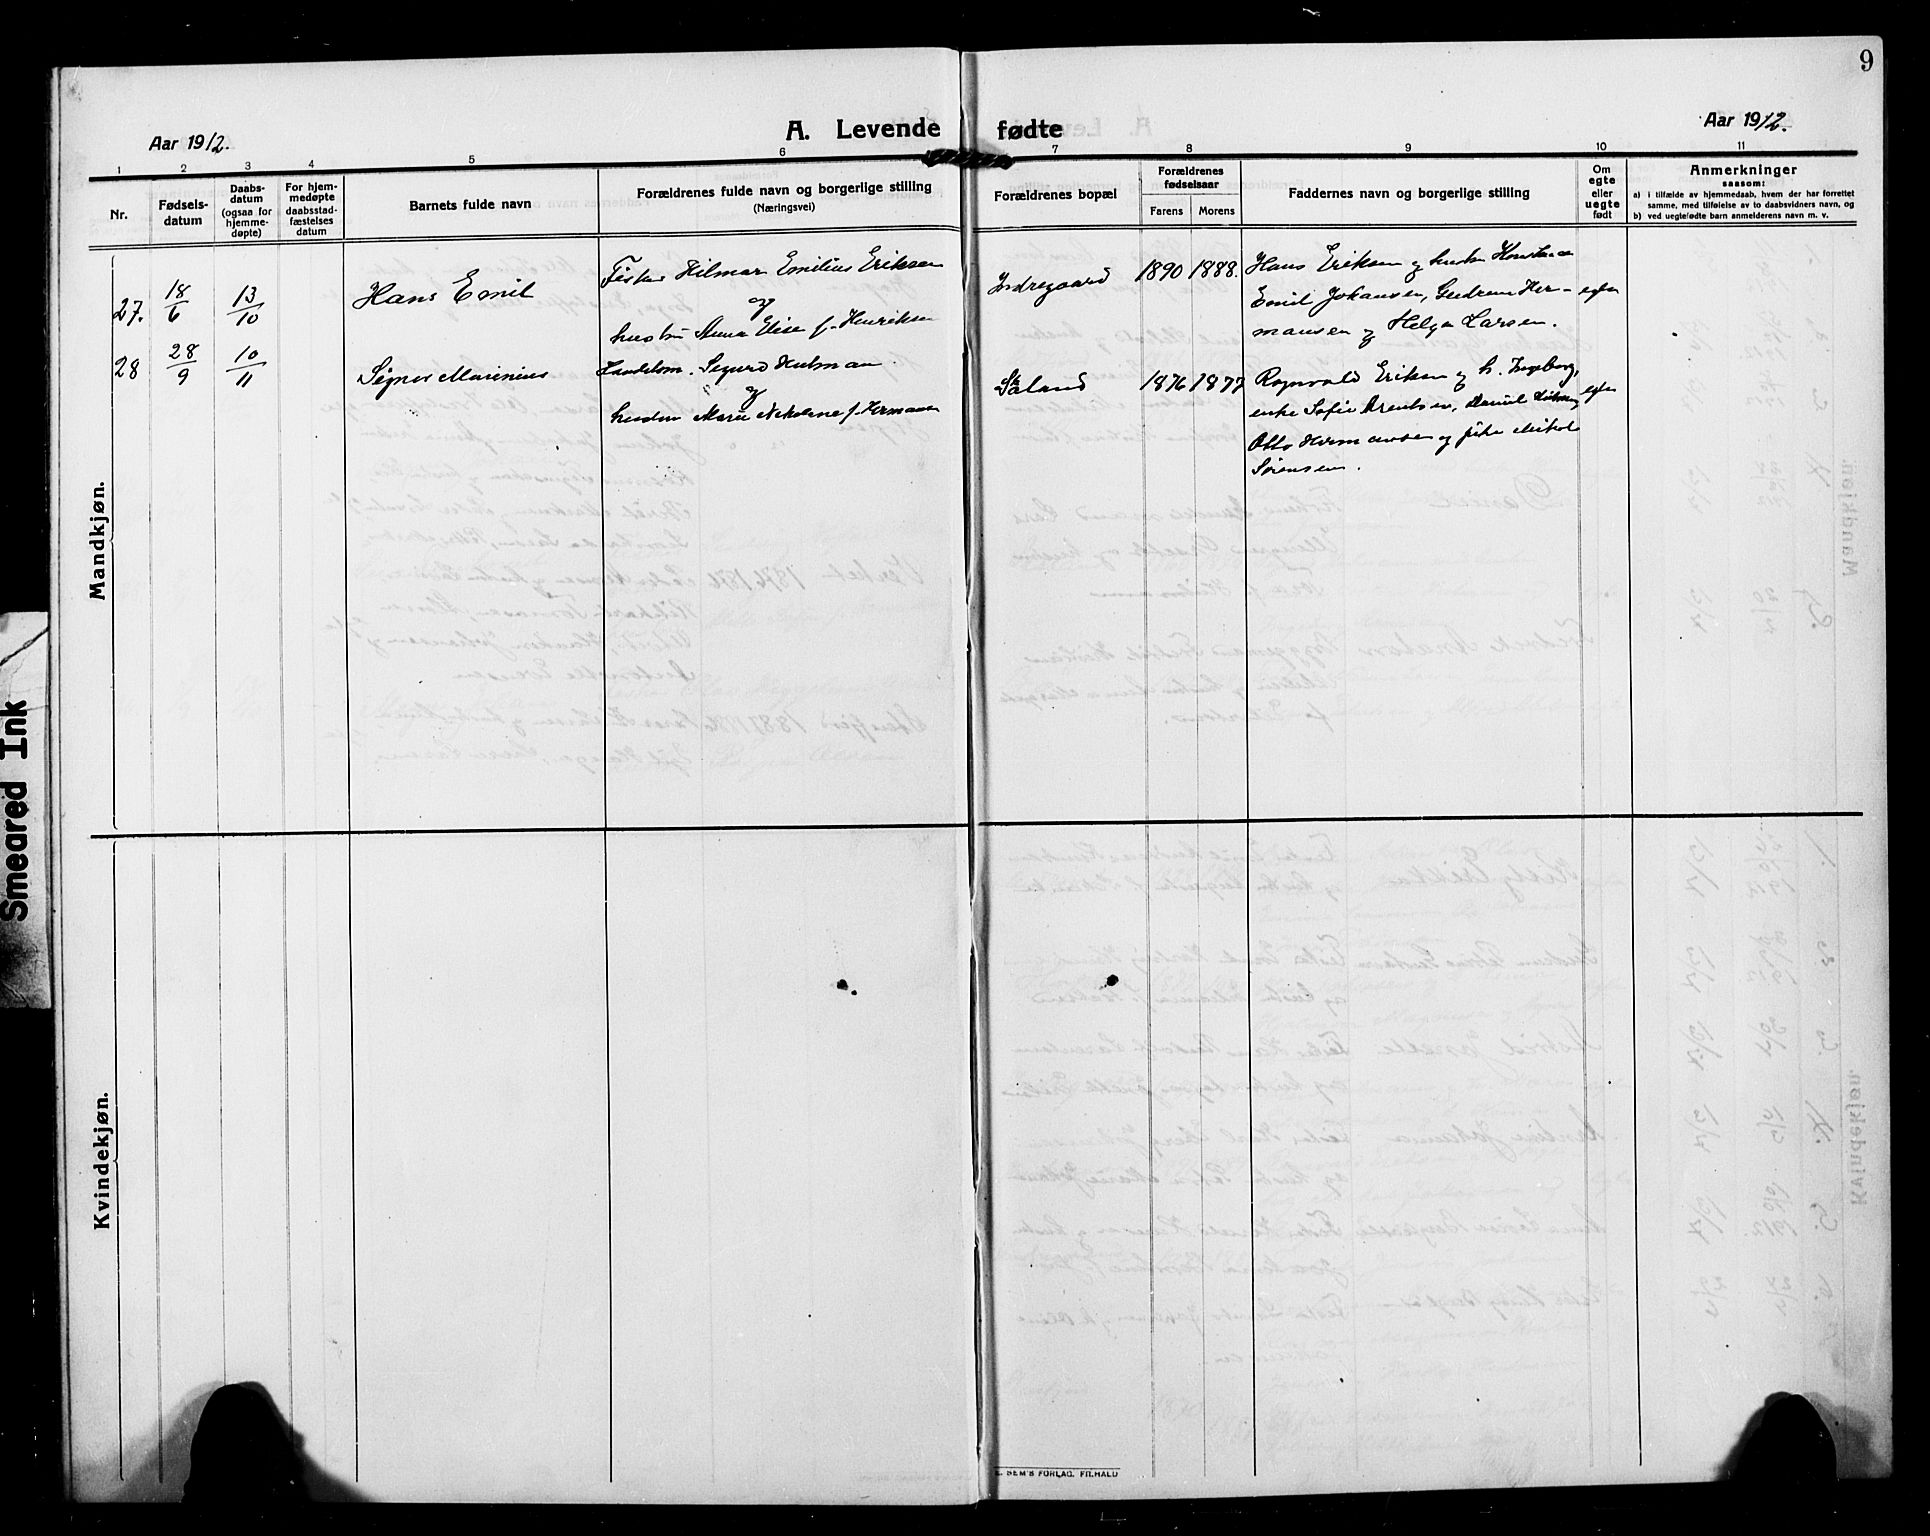 9
Aar 1912.
A. Levende fødte
Aar 1912.
1 2 3 4 5 6 7 8 9 10 11
Nr.
Fødsels-
datum
Daabs-
datum
(ogsaa for
hjemme-
døpte)
For hjem-
medøpte
daabsstad-
fæstelses
datum
Barnets fulde navn
Forældrenes fulde navn og borgerlige stilling
(Næringsvei)
Forældrenes bopæl
Forældrenes
fødselsaar
Farens Morens
Faddernes navn og borgerlige stilling
Om
egte
eller
uegte
født
Anmerkninger
saasom:
a) i tilfælde av hjemmedaab, hvem der har forrettet
samme, med tilføielse av to daabsvidners navn, og
b) ved uegtefødte barn anmelderens navn m. v.
Mandkjøn.
27. 18/6 13/10 Hans Emil
Fisker Hilmar Emilius Eriksen
og
hustru Anna Elise f. Henriksen
Indregaard 1890 1888.
Hans Eriksen og hustru
Emil Johansen, Gudrun Her-
mansen og Helga Larsen.
egte
28 28/9 10/11 Signor Marinius
Landhdlm. Sigurd
og
hustru Marie Nikoline f. Hermansen
Skaland 1876 1877
Ragnvald Eriksen og h. Ingeborg,
enke Sofie Arentsen, Daniel
Otto Hermansen og pike
Sørensen.
egte
Kvindekjøn.
SEM'S FORLAG, FR.HALD
Smeared Ink